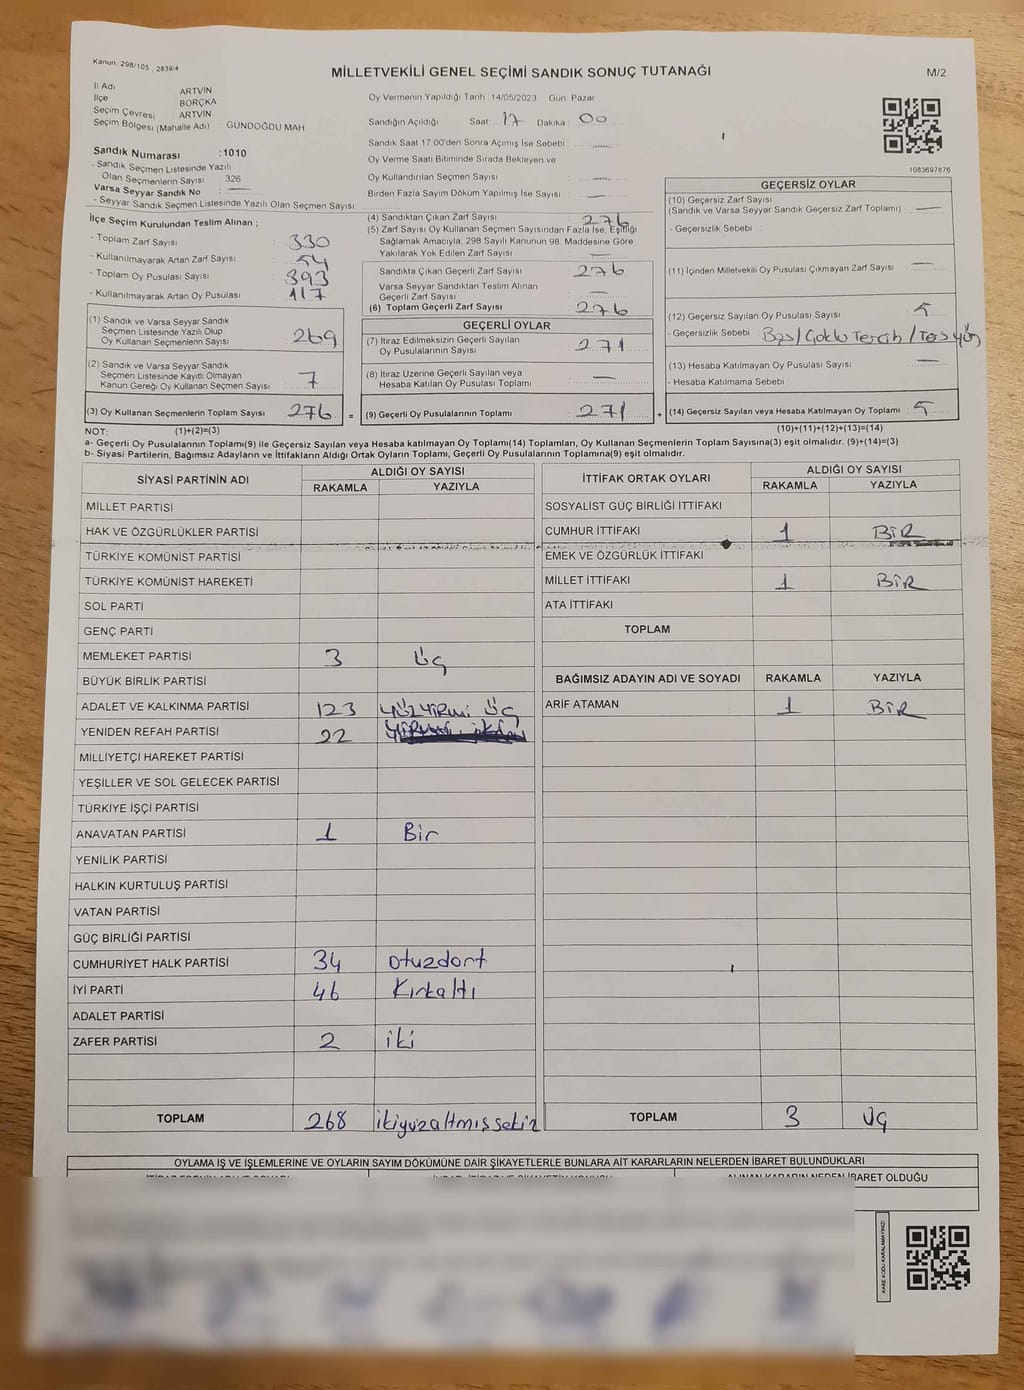 Kanun; 298/105 , 2839/4
MİLLETVEKİLİ GENEL SEÇİMİ SANDIK SONUÇ TUTANAĞI
M/2
İl Adı ARTVİN
İlçe BORÇKA
Seçim Çevresi : ARTVİN
Seçim Bölgesi (Mahalle Adı) : GÜNDOĞDU MAH
Oy Vermenin Yapıldığı Tarih :14/05/2023 Gün: Pazar
Sandığın Açıldığı Saat: 17 Dakika : 00
Sandık Saat 17:00'den Sonra Açımış İse Sebebi :
Oy Verme Saati Bitiminde Sırada Bekleyen ve
Oy Kullandırılan Seçmen Sayısı : —
Birden Fazla Sayım Döküm Yapılmış İse Sayısı : —
1083697876
Sandık Numarası :1010
- Sandık Seçmen Listesinde Yazılı
Olan Seçmenlerin Sayısı : 326
Varsa Seyyar Sandık No : —
- Seyyar Sandık Seçmen Listesinde Yazılı Olan Seçmen Sayısı:
İlçe Seçim Kurulundan Teslim Alınan ;
- Toplam Zarf Sayısı : 330
- Kullanılmayarak Artan Zarf Sayısı : 54
- Toplam Oy Pusulası Sayısı : 393
- Kullanılmayarak Artan Oy Pusulası : 117
(1) Sandık ve Varsa Seyyar Sandık
Seçmen Listesinde Yazılı Olup
Oy Kullanan Seçmenlerin Sayısı : 269
(2) Sandık ve Varsa Seyyar Sandık
Seçmen Listesinde Kayıtlı Olmayan
Kanun Gereği Oy Kullanan Seçmen Sayısı : 7
(3) Oy Kullanan Seçmenlerin Toplam Sayısı : 276 =
(4) Sandıktan Çıkan Zarf Sayısı : 276
(5) Zarf Sayısı Oy Kullanan Seçmen Sayısından Fazla İse, Eşitliği
Sağlamak Amacıyla; 298 Sayılı Kanunun 98. Maddesine Göre
Yakılarak Yok Edilen Zarf Sayısı : —
Sandıkta Çıkan Geçerli Zarf Sayısı : 276
Varsa Seyyar Sandıktan Teslim Alınan
Geçerli Zarf Sayısı : —
(6) Toplam Geçerli Zarf Sayısı : 276
GEÇERLİ OYLAR
(7) İtiraz Edilmeksizin Geçerli Sayılan
Oy Pusulasının Sayısı : 271
(8) İtiraz Üzerine Geçerli Sayılan veya
Hesaba Katılan Oy Pusulası Toplamı : —
(9) Geçerli Oy Pusulalarının Toplamı : 271 +
GEÇERSİZ OYLAR
(10) Geçersiz Zarf Sayısı
(Sandık ve Varsa Seyyar Sandık Geçersiz Zarf Toplamı) : —
- Geçersizlik Sebebi :
(11) İçinden Milletvekili Oy Pusulası Çıkmayan Zarf Sayısı : —
(12) Geçersiz Sayılan Oy Pusulası Sayısı : 5
- Geçersizlik Sebebi : Boş/Çoklu Tercih/Tersyüz
(13) Hesaba Katılmayan Oy Pusulası Sayısı : —
- Hesaba Katılmama Sebebi :
(14) Geçersiz Sayılan veya Hesaba Katılmayan Oy Toplamı : 5
NOT: (1)+(2)=(3)
(10)+(11)+(12)+(13)=(14)
a- Geçerli Oy Pusulalarının Toplamı(9) ile Geçersiz Sayılan veya Hesaba katılmayan Oy Toplamı(14) Toplamları, Oy Kullanan Seçmenlerin Toplam Sayısına(3) eşit olmalıdır. (9)+(14)=(3)
b- Siyasi Partilerin, Bağımsız Adayların ve İttifakların Aldığı Ortak Oyların Toplamı, Geçerli Oy Pusulalarının Toplamına(9) eşit olmalıdır.
SİYASİ PARTİNİN ADI ALDIĞI OY SAYISI
RAKAMLA YAZIYLA
MİLLET PARTİSİ
HAK VE ÖZGÜRLÜKLER PARTİSİ
TÜRKİYE KOMÜNİST PARTİSİ
TÜRKİYE KOMÜNİST HAREKETİ
SOL PARTİ
GENÇ PARTİ
MEMLEKET PARTİSİ 3 üç
BÜYÜK BİRLİK PARTİSİ
ADALET VE KALKINMA PARTİSİ 123 YÜZYİRMİ ÜÇ
YENİDEN REFAH PARTİSİ 22
MİLLİYETÇİ HAREKET PARTİSİ
YEŞİLLER VE SOL GELECEK PARTİSİ
TÜRKİYE İŞÇİ PARTİSİ
ANAVATAN PARTİSİ 1 Bir
YENİLİK PARTİSİ
HALKIN KURTULUŞ PARTİSİ
VATAN PARTİSİ
GÜÇ BİRLİĞİ PARTİSİ
CUMHURİYET HALK PARTİSİ 34 otuzdort
İYİ PARTİ 46 Kırkaltı
ADALET PARTİSİ
ZAFER PARTİSİ 2 iki
TOPLAM 268 ikiyüzaltmışsekiz
İTTİFAK ORTAK OYLARI ALDIĞI OY SAYISI
RAKAMLA YAZIYLA
SOSYALİST GÜÇ BİRLİĞİ İTTİFAKI
CUMHUR İTTİFAKI 1 BİR
EMEK VE ÖZGÜRLÜK İTTİFAKI
MİLLET İTTİFAKI 1 BİR
ATA İTTİFAKI
TOPLAM
BAĞIMSIZ ADAYIN ADI VE SOYADI RAKAMLA YAZIYLA
ARİF ATAMAN 1 BİR
TOPLAM 3 üç
OYLAMA İŞ VE İŞLEMLERİNE VE OYLARIN SAYIM DÖKÜMÜNE DAİR ŞİKAYETLERLE BUNLARA AİT KARARLARIN NELERDEN İBARET BULUNDUKLARI
ALINAN KARARIN NEDEN İBARET OLDUĞU
KARE KODU KARALAMAYINIZ!